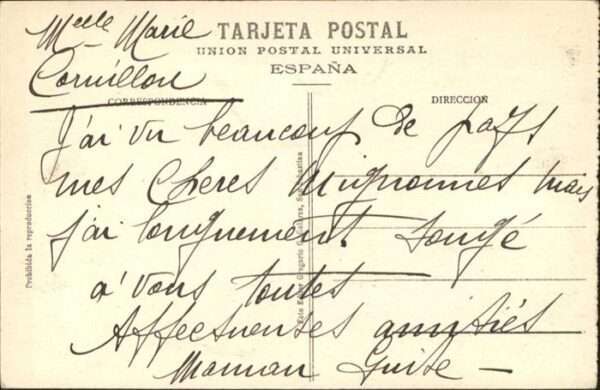 Melle Marie
Cornillon
TARJETA POSTAL
UNION POSTAL UNIVERSAL
ESPAÑA
CORRESPONDENCIA
DIRECCION
J'ai vu beaucoup de pays
mes Chères Mignonnes mais
j'ai longuement songé
a' vous toutes
Affectueuses amitiés
Maman Guite
Prohibida la reproduccion